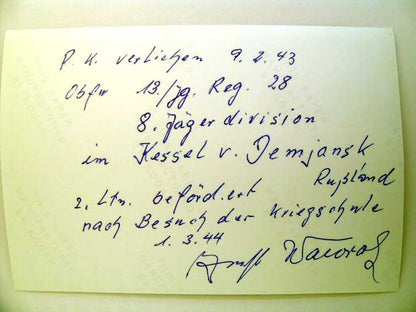 R. K. verliehen 9. 2. 43
Obfw 13./Jg. Reg. 28
8. Jägerdivision
im Kessel v. Demjansk
Rußland
z. Ltn. befördert
nach Besuch der Kriegschule
1. 3. 44